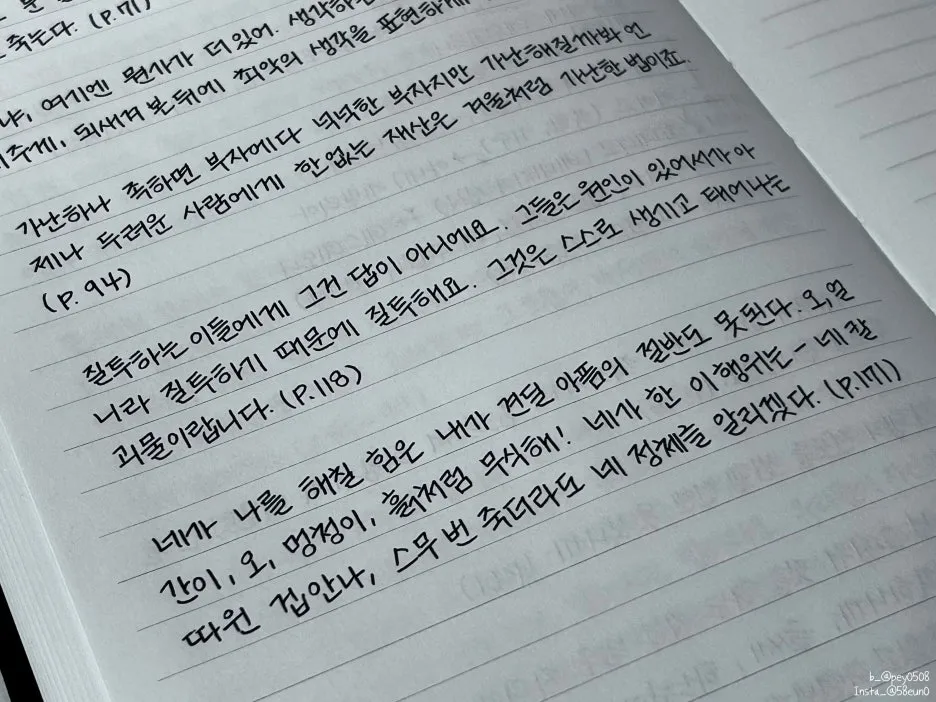 죽는다. (P.71)
, 여기엔 뭔가가 더 있어. 생각하는
주게, 되새겨 본 뒤에 최악의 생각을 표현하게
가난하나 족하면 부자에다 넉넉한 부자지만 가난해질까봐 언
제나 두려운 사람에게 한없는 재산은 겨울처럼 가난한 법이죠.
(P. 94)
질투하는 이들에게 그건 답이 아니에요. 그들은 원인이 있어서가 아
니라 질투하기 때문에 질투해요. 그것은 스스로 생기고 태어나는
괴물이랍니다. (P.118)
네가 나를 해칠 힘은 내가 견딜 아픔의 절반도 못된다. 오, 얼
간이, 오, 멍청이, 흙처럼 무식해! 네가 한 이 행위는 - 네 칼
따윈 겁안나, 스무 번 죽더라도 네 정체를 알리겠다. (P.171)
b_@pey0508
Insta_@58eun0